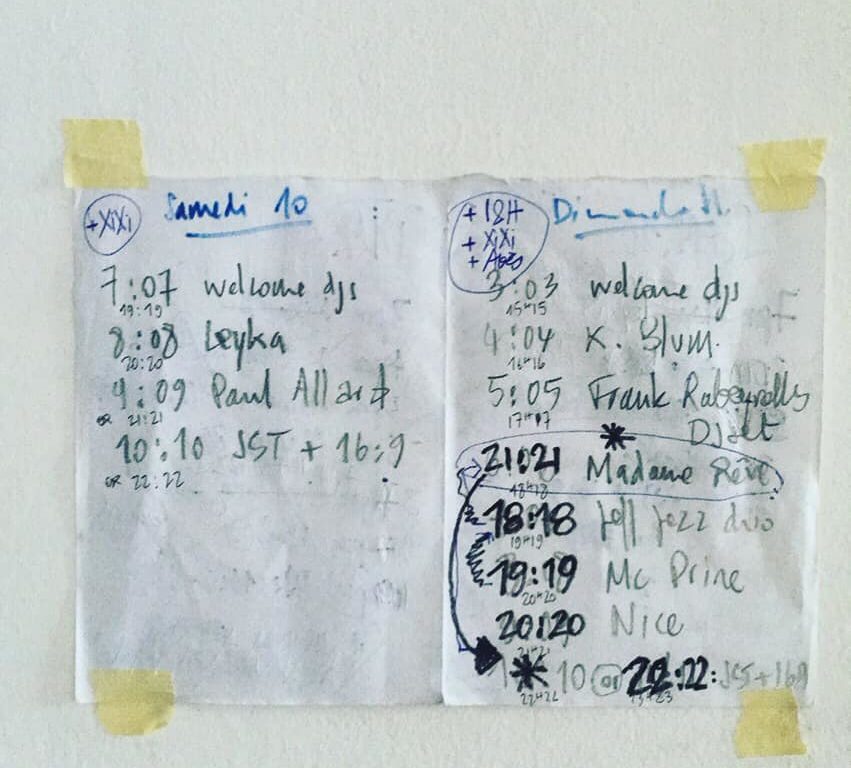 +XiXi
Samedi 10
7:07 welcome djs
19:19
8:08 Leyka
20:20
9:09 Paul Allard
or 21:21
10:10 JST + 16:9
or 22:22
+ 18H
+ XiXi
+
Dimanche 11
3:03 welcome djs
15H15
4:04 K. Blum.
16H16
5:05 Frank Rabeyrolles
17H17
DJset
21:21 Madame Rêve
18H18
18:18 Jeff Jazz duo
19H19
19:19 Mc Prine
20H20
20:20 Nice
21H21
10 or 22:22: JST + 16:9
22H22 23H23